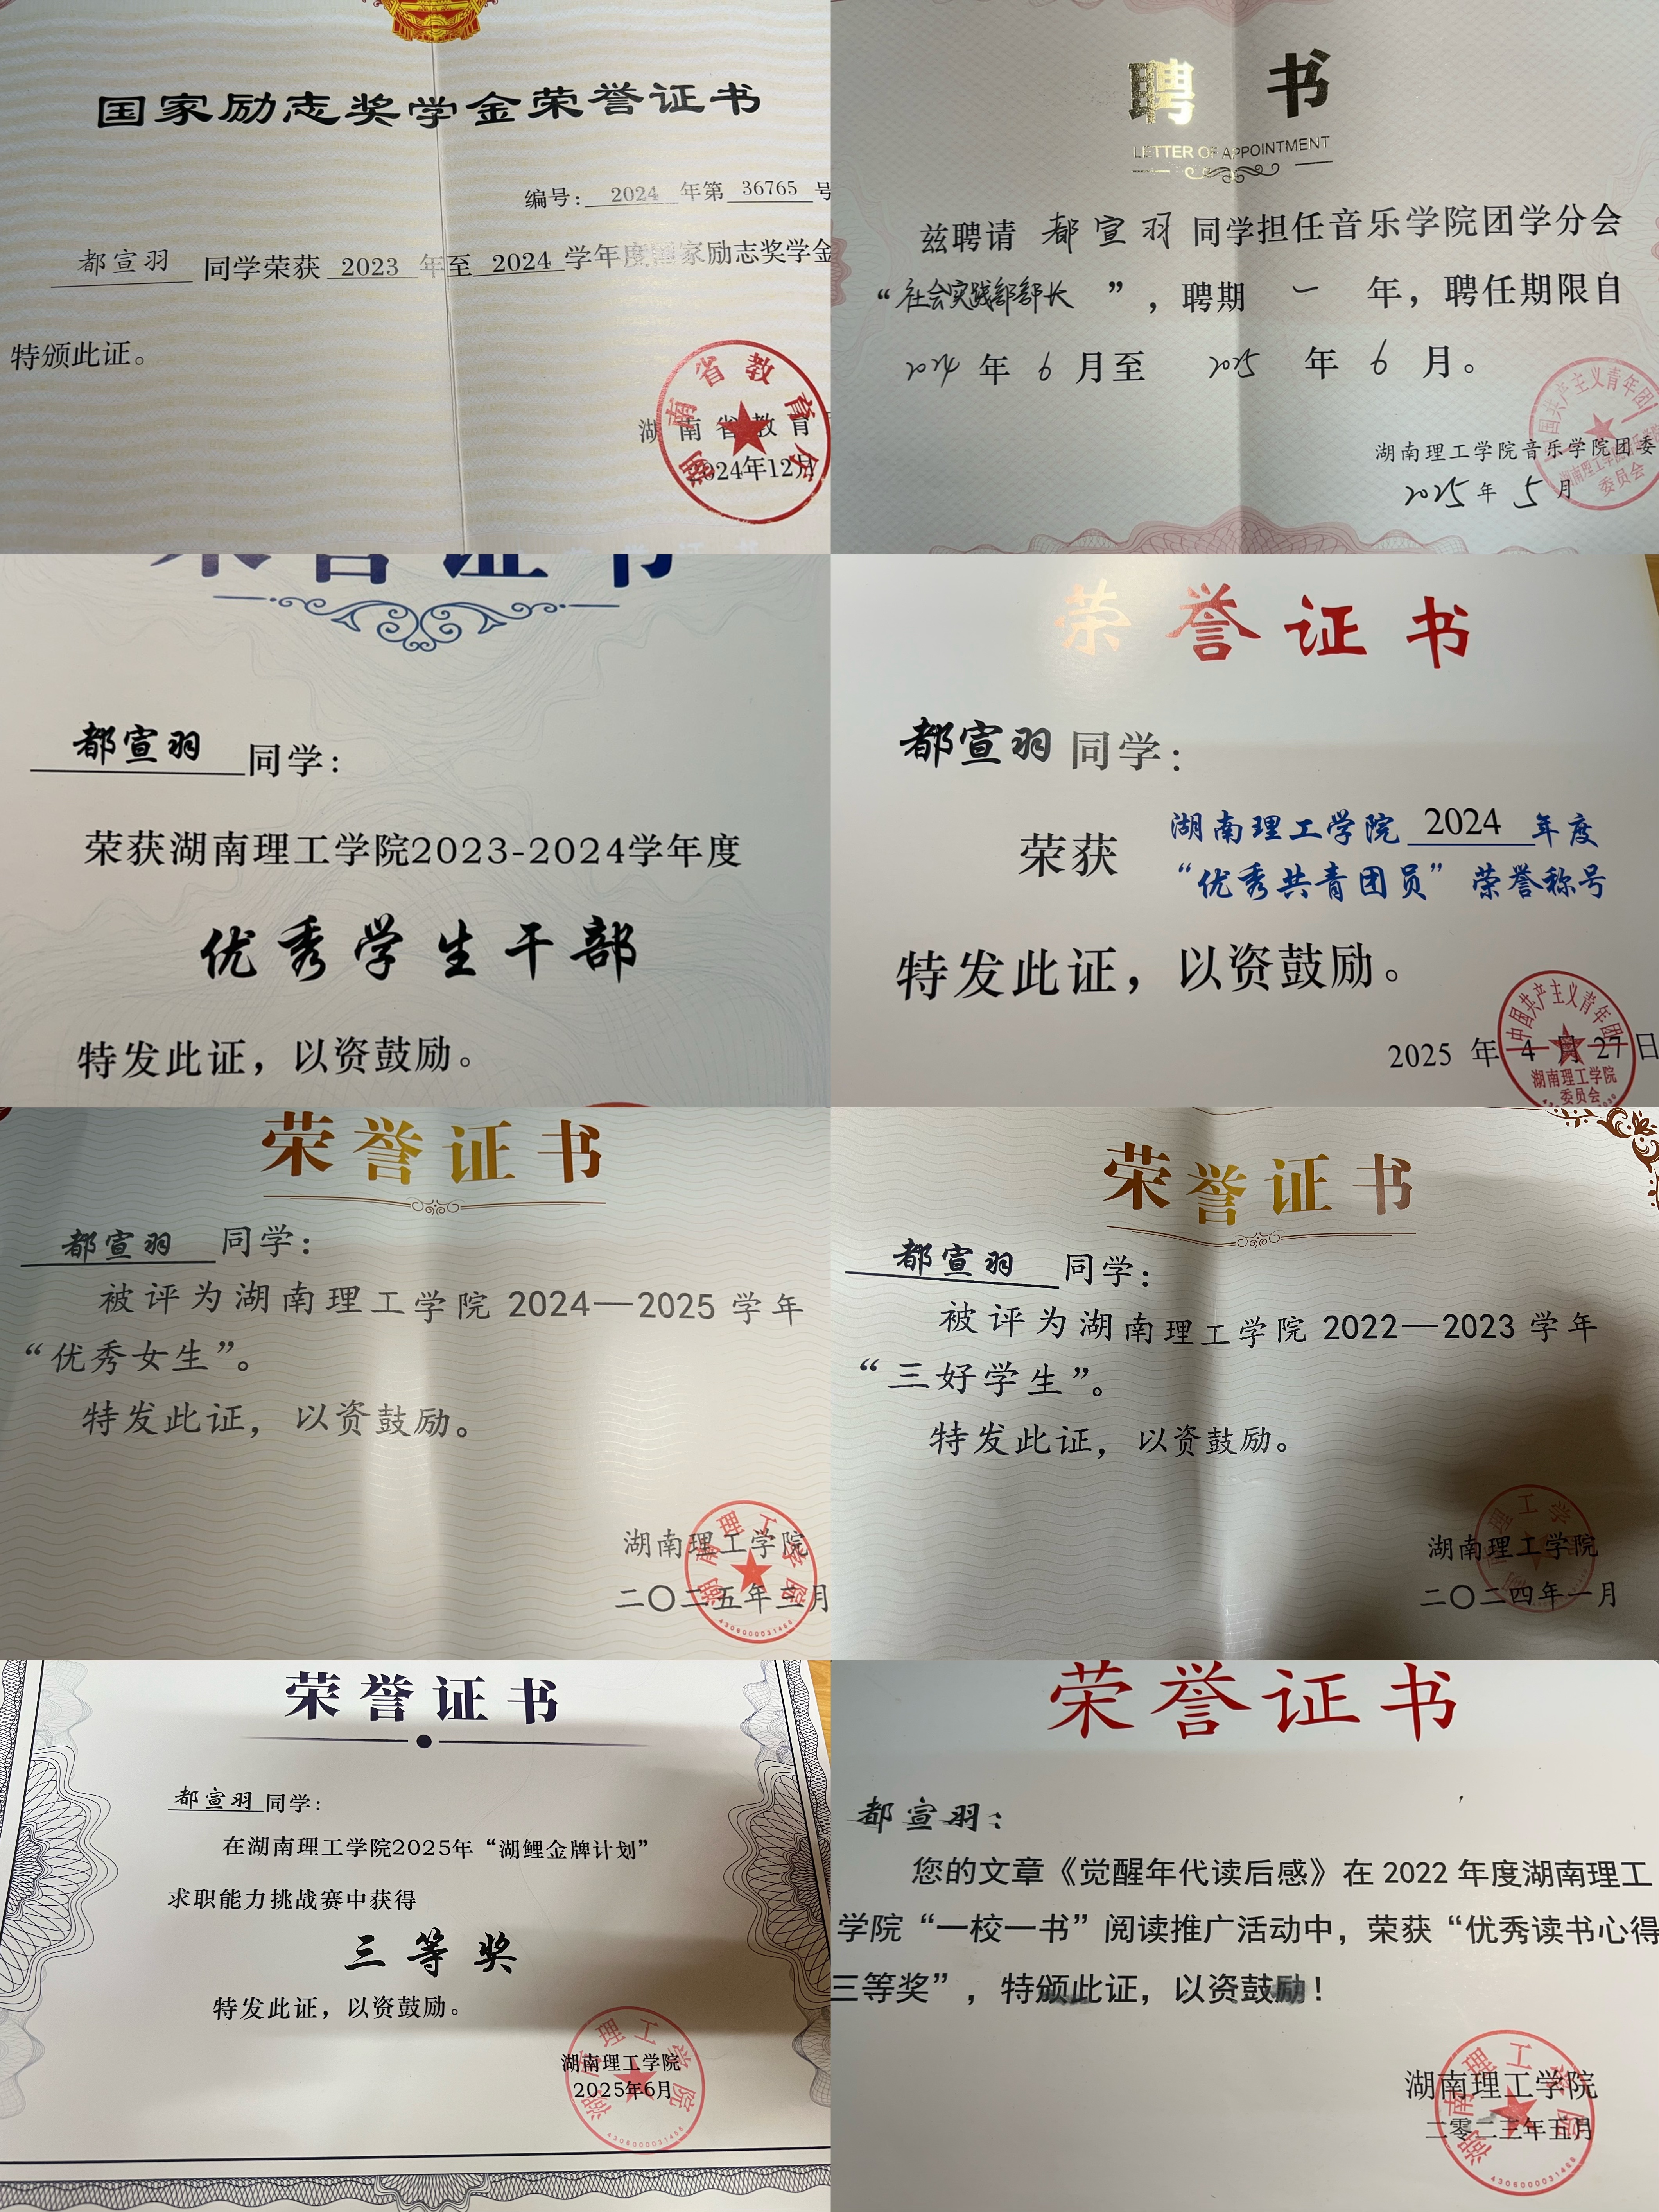 国家励志奖学金荣誉证书
编号：2024年第36765号
都宣羽 同学荣获 2023 年至 2024 学年度国家励志奖学金
特颁此证。
湖南省教育
2024年12月
湖南省教育厅
聘 书
LETTER OF APPOINTMENT
兹聘请 都宣羽 同学担任音乐学院团学分会
“社会实践部部长”，聘期 一 年，聘任期限自
2024 年 6 月至 2025 年 6 月。
湖南理工学院音乐学院团委
2025年5月
荣誉证书
都宣羽 同学：
荣获湖南理工学院2023-2024学年度
优秀学生干部
特发此证，以资鼓励。
荣誉证书
都宣羽同学：
荣获 湖南理工学院 2024 年度
“优秀共青团员”荣誉称号
特发此证，以资鼓励。
2025 年 4 月 27 日
中国共产主义青年团
湖南理工学院
委员会
荣誉证书
都宣羽 同学：
被评为湖南理工学院 2024—2025 学年
“优秀女生”。
特发此证，以资鼓励。
湖南理工学院
二〇二五年三月
湖南理工学院
4306000031486
荣誉证书
都宣羽 同学：
被评为湖南理工学院 2022—2023 学年
“三好学生”。
特发此证，以资鼓励。
湖南理工学院
二〇二四年一月
荣誉证书
都宣羽同学：
在湖南理工学院2025年“湖鲤金牌计划”
求职能力挑战赛中获得
三等奖
特发此证，以资鼓励。
湖南理工学院
2025年6月
湖南理工学院
4306000031486
荣誉证书
都宣羽：
您的文章《觉醒年代读后感》在 2022 年度湖南理工
学院“一校一书”阅读推广活动中，荣获“优秀读书心得
三等奖”，特颁此证，以资鼓励！
湖南理工学院
二零二三年五月
湖南理工学院
4306000031486